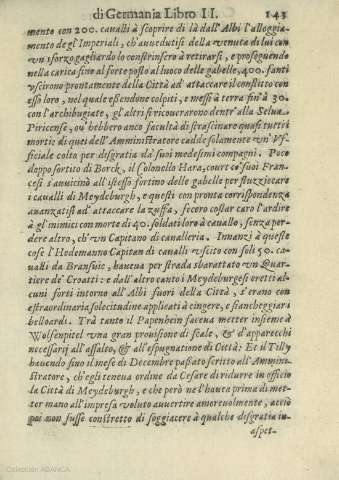 di Germania Libro II. 143
mento con 200. caualli à scoprire di là dall'Albi l'alloggia-
mento de gl'Imperiali, ch'auuedutisi della venuta di lui con
vn sforzo gagliardo lo constrinsero à retirarsi, e proseguendo
nella carica sino al forte posto al luoco delle gabelle, 400. fanti
vscirono prontamente della Città ad'attaccare il conflitto con
esso loro, nel quale essendone colpiti, e messi à terra fin'à 30.
con l'archibugiate, gl'altri si ricourarono dentr'alla Selua
Piricense, ou'hebbero anco facultà di strascinare quasi tutti i
morti: e di quei dell'Amministratore cadde solamente vn'Vf-
ficiale colto per disgratia da suoi medesimi compagni. Poco
doppo sortito di Borck, il Colonello Hara, court co' suoi Fran-
cesi s'auuicinò all'istesso fortino delle gabelle per stuzzicare
i caualli di Meydeburgh, e questi con pronta corrispondenza
auanzatisi ad'attaccare la zuffa, fecero costar caro l'ardire
à gl'inimici con morte di 40. soldati loro à cauallo, senza per-
dere altro, ch'vn Capitano di caualleria. Innanzi à queste
cose l'Hedemanno Capitan di caualli vscito con soli 50. ca-
ualli da Bransuic, haueua per strada sbarattato vn Quar-
tiere de' Croatti: e dall'altro canto i Meydeburgesi eretti al-
cuni forti intorno all'Albi fuori della Città, s'erano con
estraordinaria solecitudine applicati à cingere, e fiancheggiar i
belloardi. Trà tanto il Papenheim faceua metter insieme à
Wolfenpitel vna gran prouisione di scale, & d'apparecchi
necessarij all'assalto, & all'espugnatione di Città: Et il Tilly
hauendo sino il mese di Decembre passato scritto all'Ammini-
stratore, ch'egli teneua ordine da Cesare di ridurre in officio
la Città di Meydeburgh, e che però ne l'haueua prima di met-
ter mano all'impresa voluto auuertire amoreuolmente, acciò
poi non fusse constretto di soggiacere à qualche disgratia in-
aspet-
Colección ABANCA